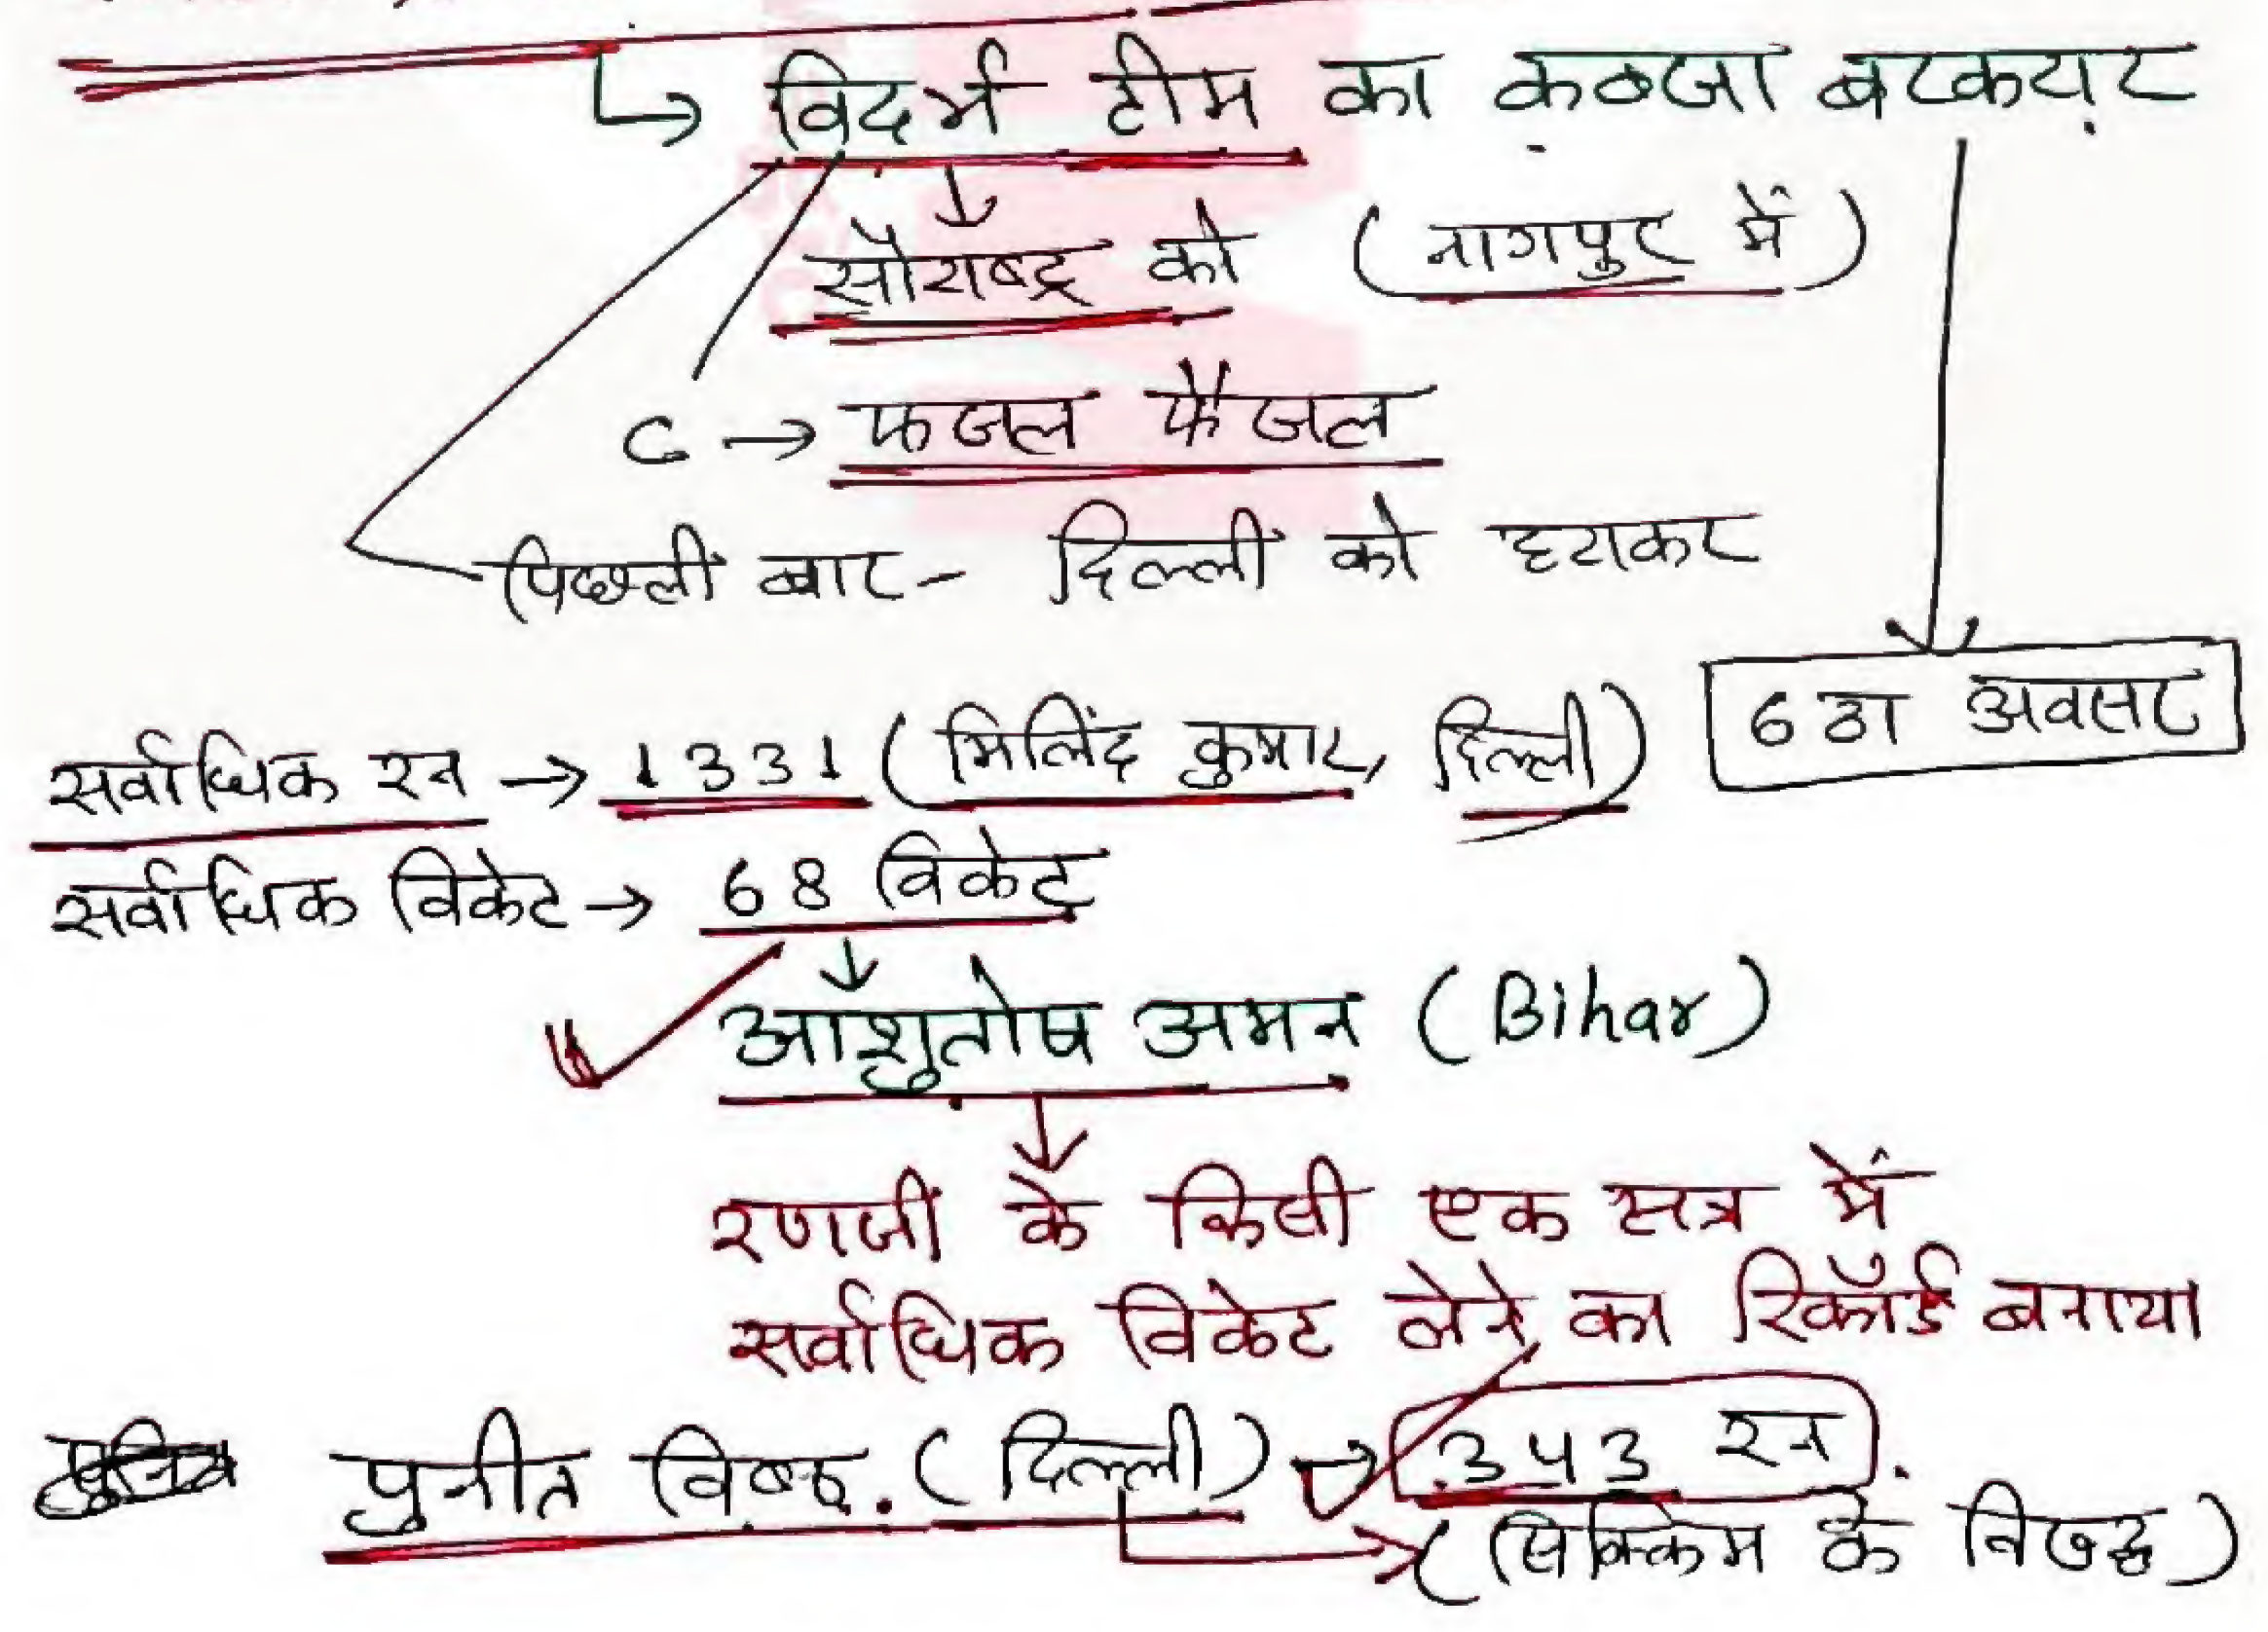 ↳ विदर्भ टीम का कब्जा बरकरार
सौराष्ट्र को (नागपुर में)
C → फजल फैजल
पिछली बार - दिल्ली को हराकर
6 ठा अवसर
सर्वाधिक रन → 1331 (मिलिंद कुमार, दिल्ली)
सर्वाधिक विकेट → 68 विकेट
आशुतोष अमन (Bihar)
रणजी के किसी एक सत्र में
सर्वाधिक विकेट लेने का रिकॉर्ड बनाया
पुनीत विष्ट (दिल्ली) → 343 रन
(सिक्किम के विरुद्ध)